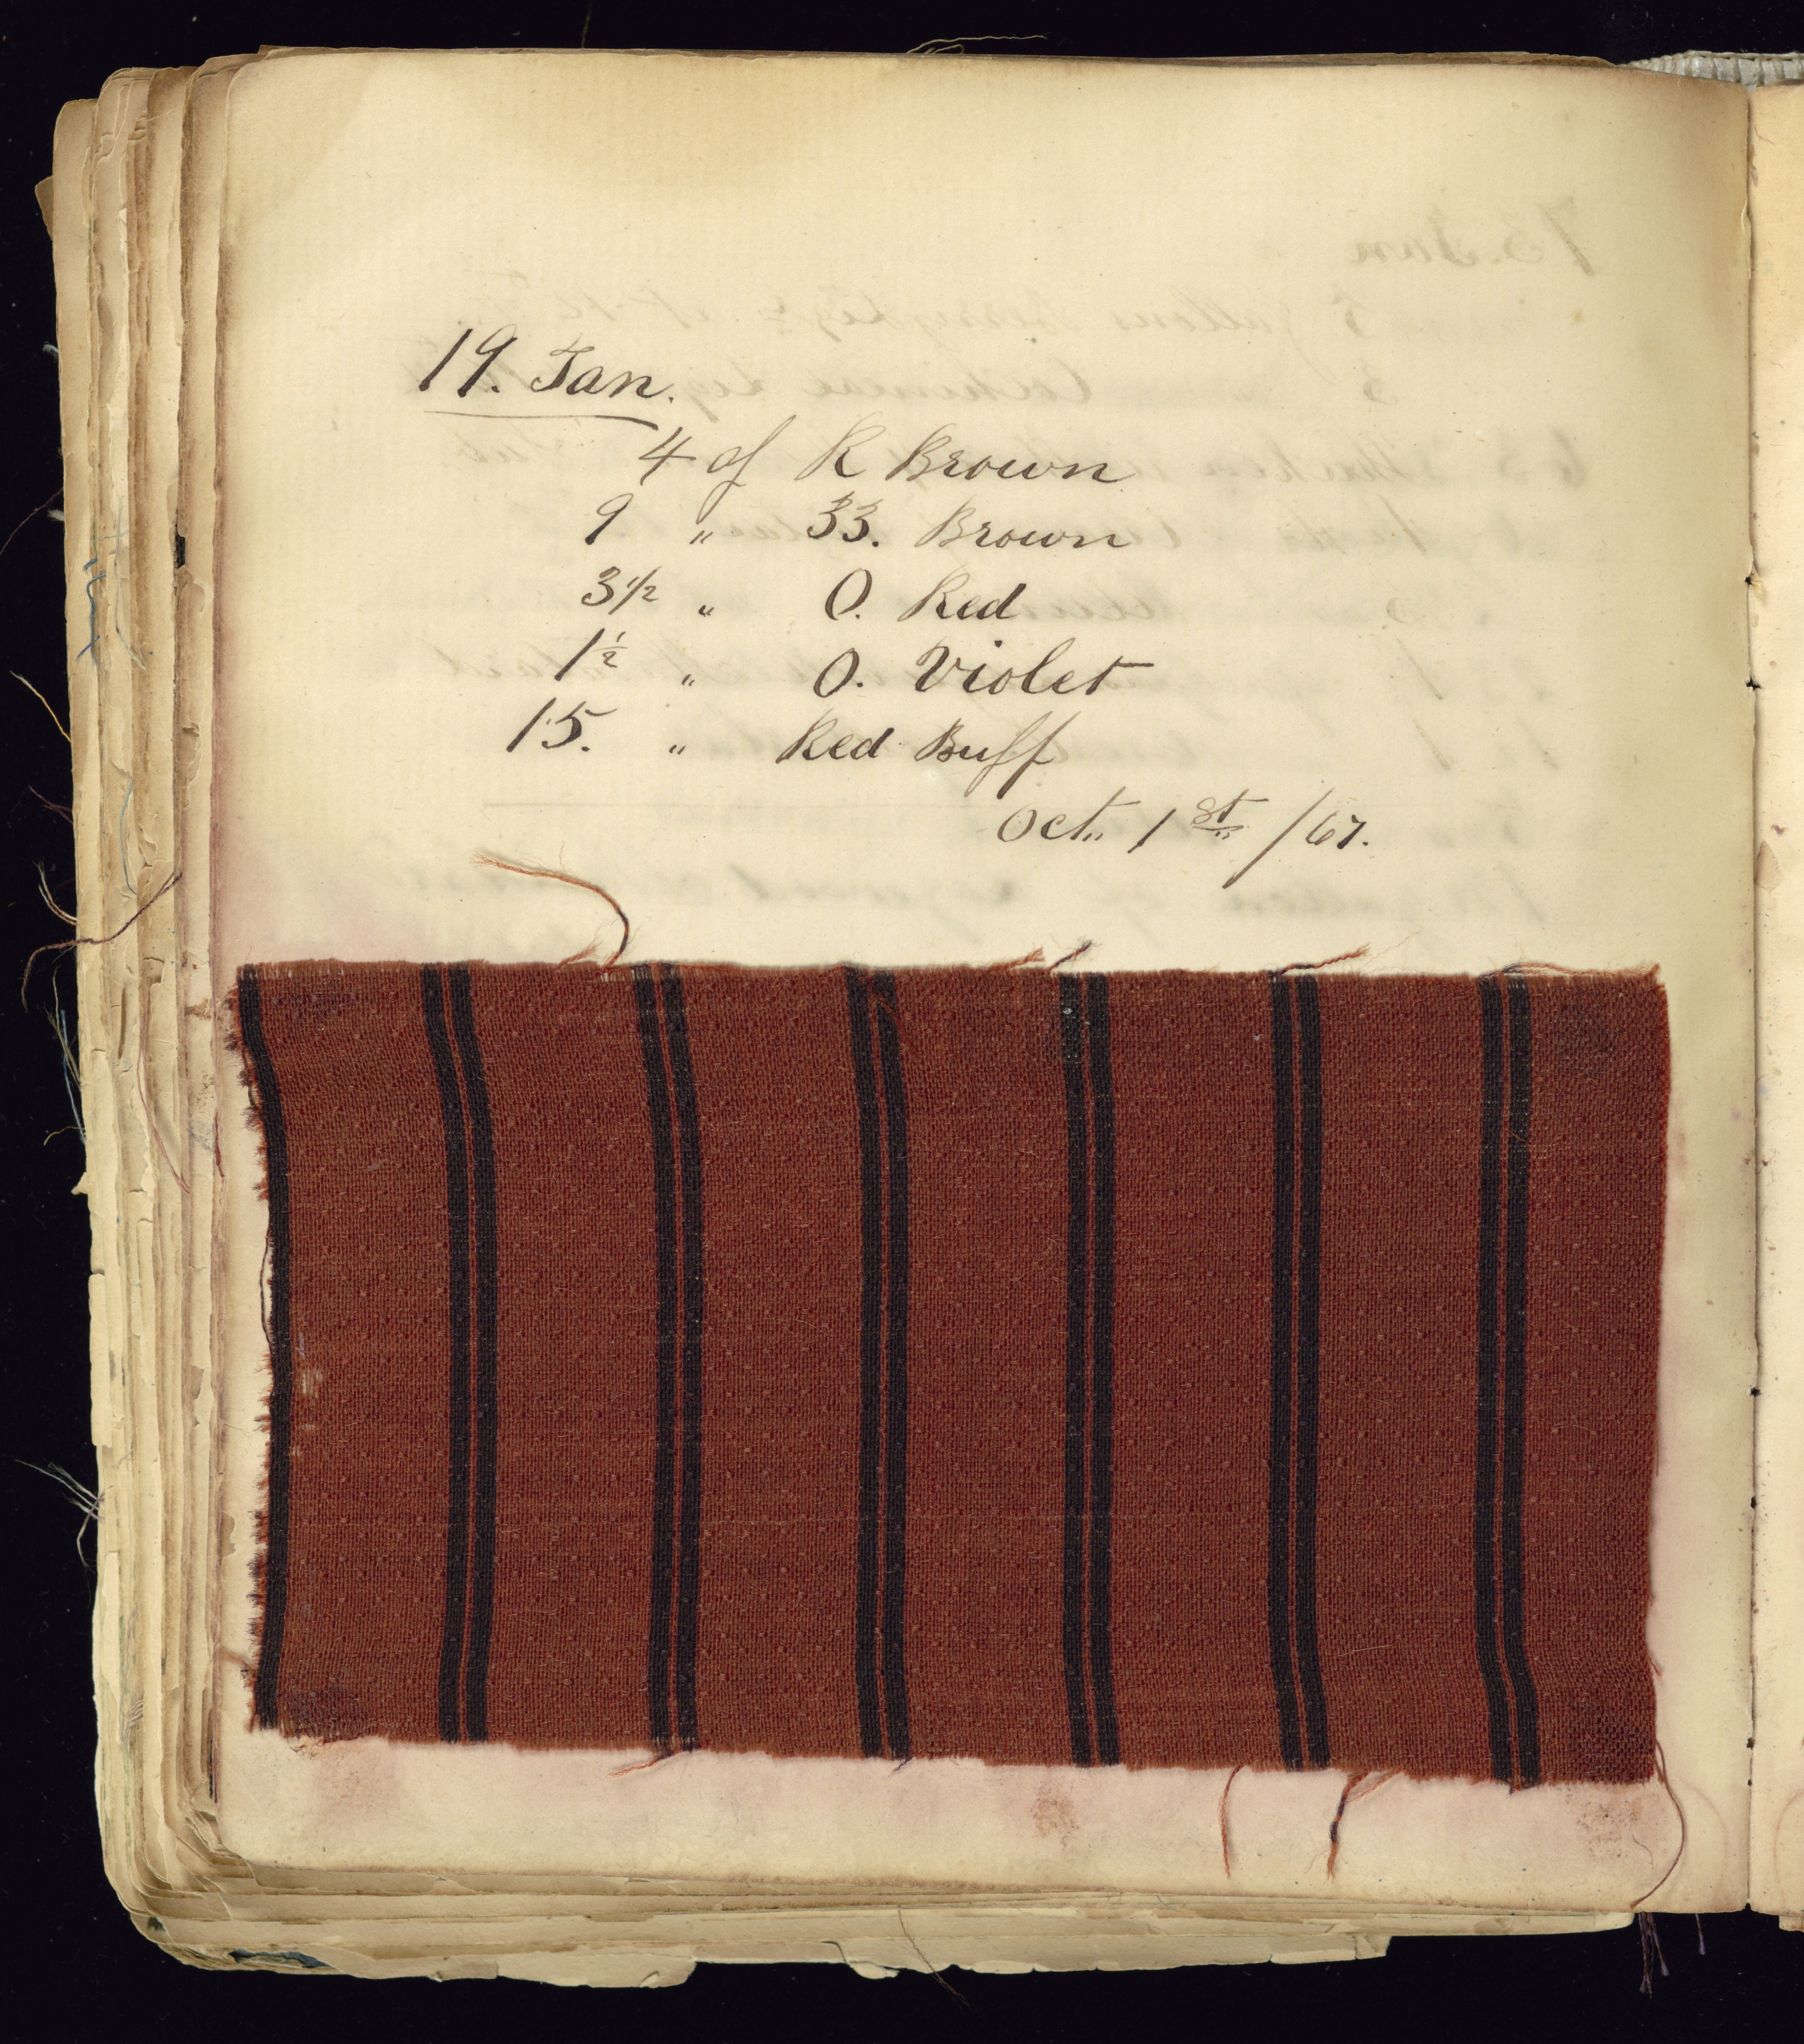 19. Tan.
4 of R Brown
9 " 33. Brown
3 1/2 " O. Red
1 1/2 " O. Violet
15. " Red Buff
Oct. 1st /67.